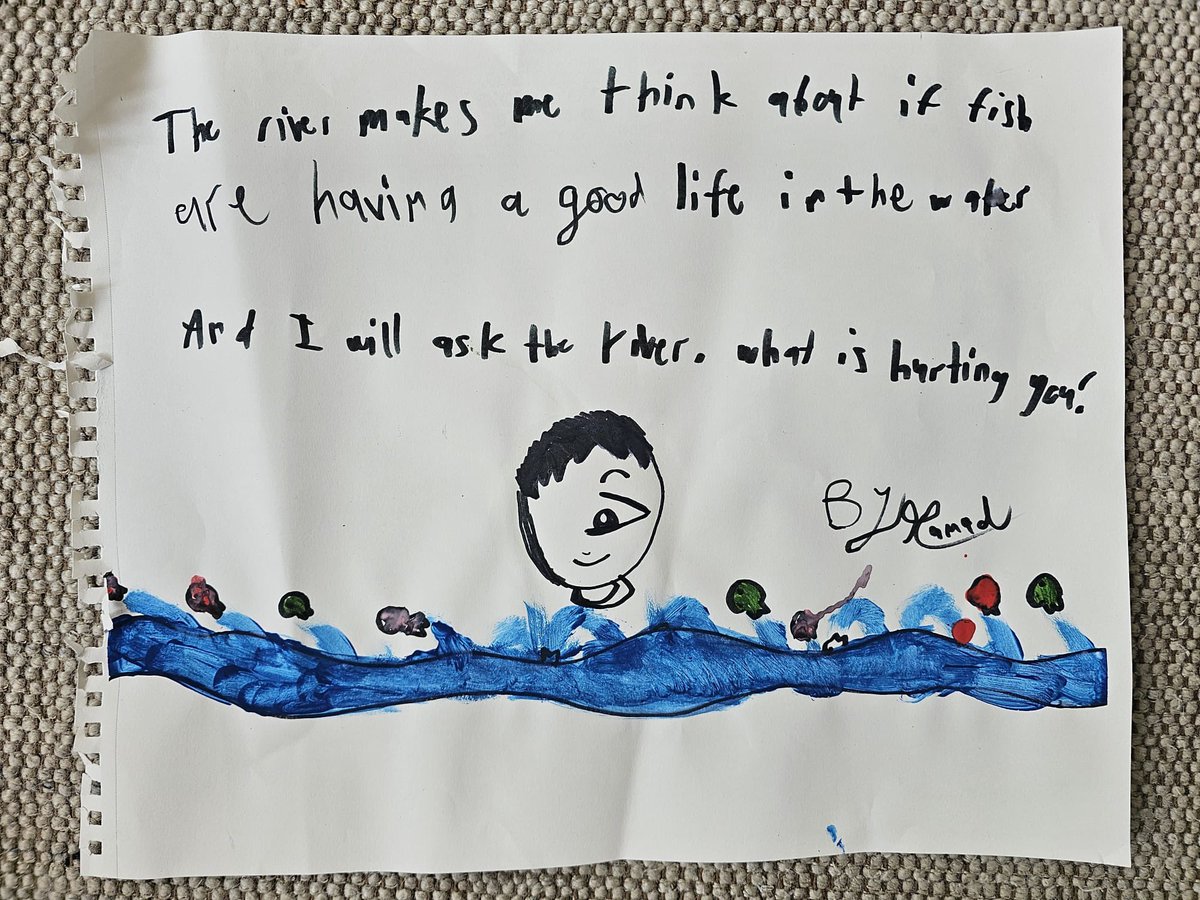 The river makes me think about if fish
are having a good life in the water
And I will ask the river. what is hurting you?
By Hamad